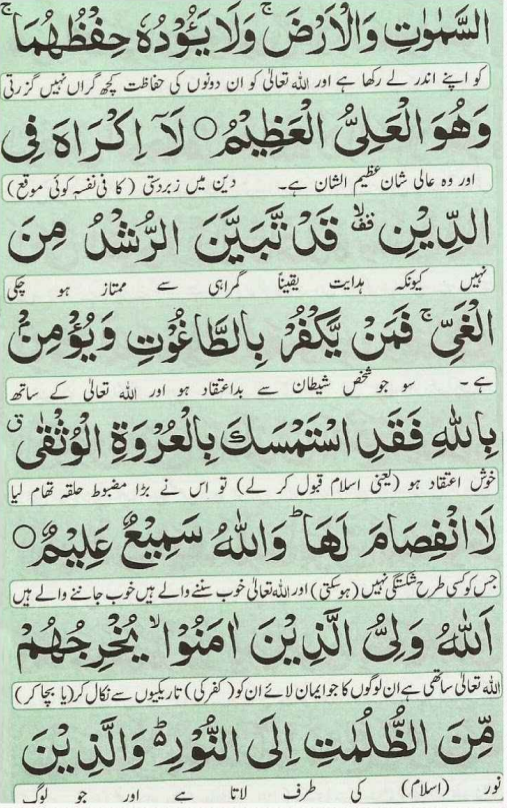 السَّمٰوٰتِ وَالْاَرْضَ ۚ وَلَا يَـُٔوْدُهٗ حِفْظُهُمَا ۚ
کو اپنے اندر لے رکھا ہے اور اللہ تعالیٰ کو ان دونوں کی حفاظت کچھ گراں نہیں گزرتی
وَهُوَ الْعَلِىُّ الْعَظِيْمُ ○ لَآ اِكْرَاهَ فِى
اور وہ عالی شان عظیم الشان ہے۔ دین میں زبردستی (کا فی نفسہٖ کوئی موقع)
الدِّيْنِ ۙقف قَدْ تَّبَيَّنَ الرُّشْدُ مِنَ
نہیں کیونکہ ہدایت یقیناً گمراہی سے ممتاز ہو چکی
الْغَىِّ ۚ فَمَنْ يَّكْفُرْ بِالطَّاغُوْتِ وَيُؤْمِنْۢ
ہے۔ سو جو شخص شیطان سے بداعتقاد ہو اور اللہ تعالیٰ کے ساتھ
بِاللّٰهِ فَقَدِ اسْتَمْسَكَ بِالْعُرْوَةِ الْوُثْقٰى ق
خوش اعتقاد ہو (یعنی اسلام قبول کر لے) تو اس نے بڑا مضبوط حلقہ تھام لیا
لَا انْفِصَامَ لَهَا ؕ وَاللّٰهُ سَمِيْعٌ عَلِيْمٌ ○
جس کو کسی طرح شکستگی نہیں (ہوسکتی) اور اللہ تعالیٰ خوب سننے والے ہیں خوب جاننے والے ہیں
اَللّٰهُ وَلِىُّ الَّذِيْنَ اٰمَنُوْا ۙ يُخْرِجُهُمْ
اللہ تعالیٰ ساتھی ہے ان لوگوں کا جو ایمان لائے ان کو (کفر کی) تاریکیوں سے نکال کر (یا بچا کر)
مِّنَ الظُّلُمٰتِ اِلَى النُّوْرِ ؕ وَالَّذِيْنَ
نور (اسلام) کی طرف لاتا ہے اور جو لوگ